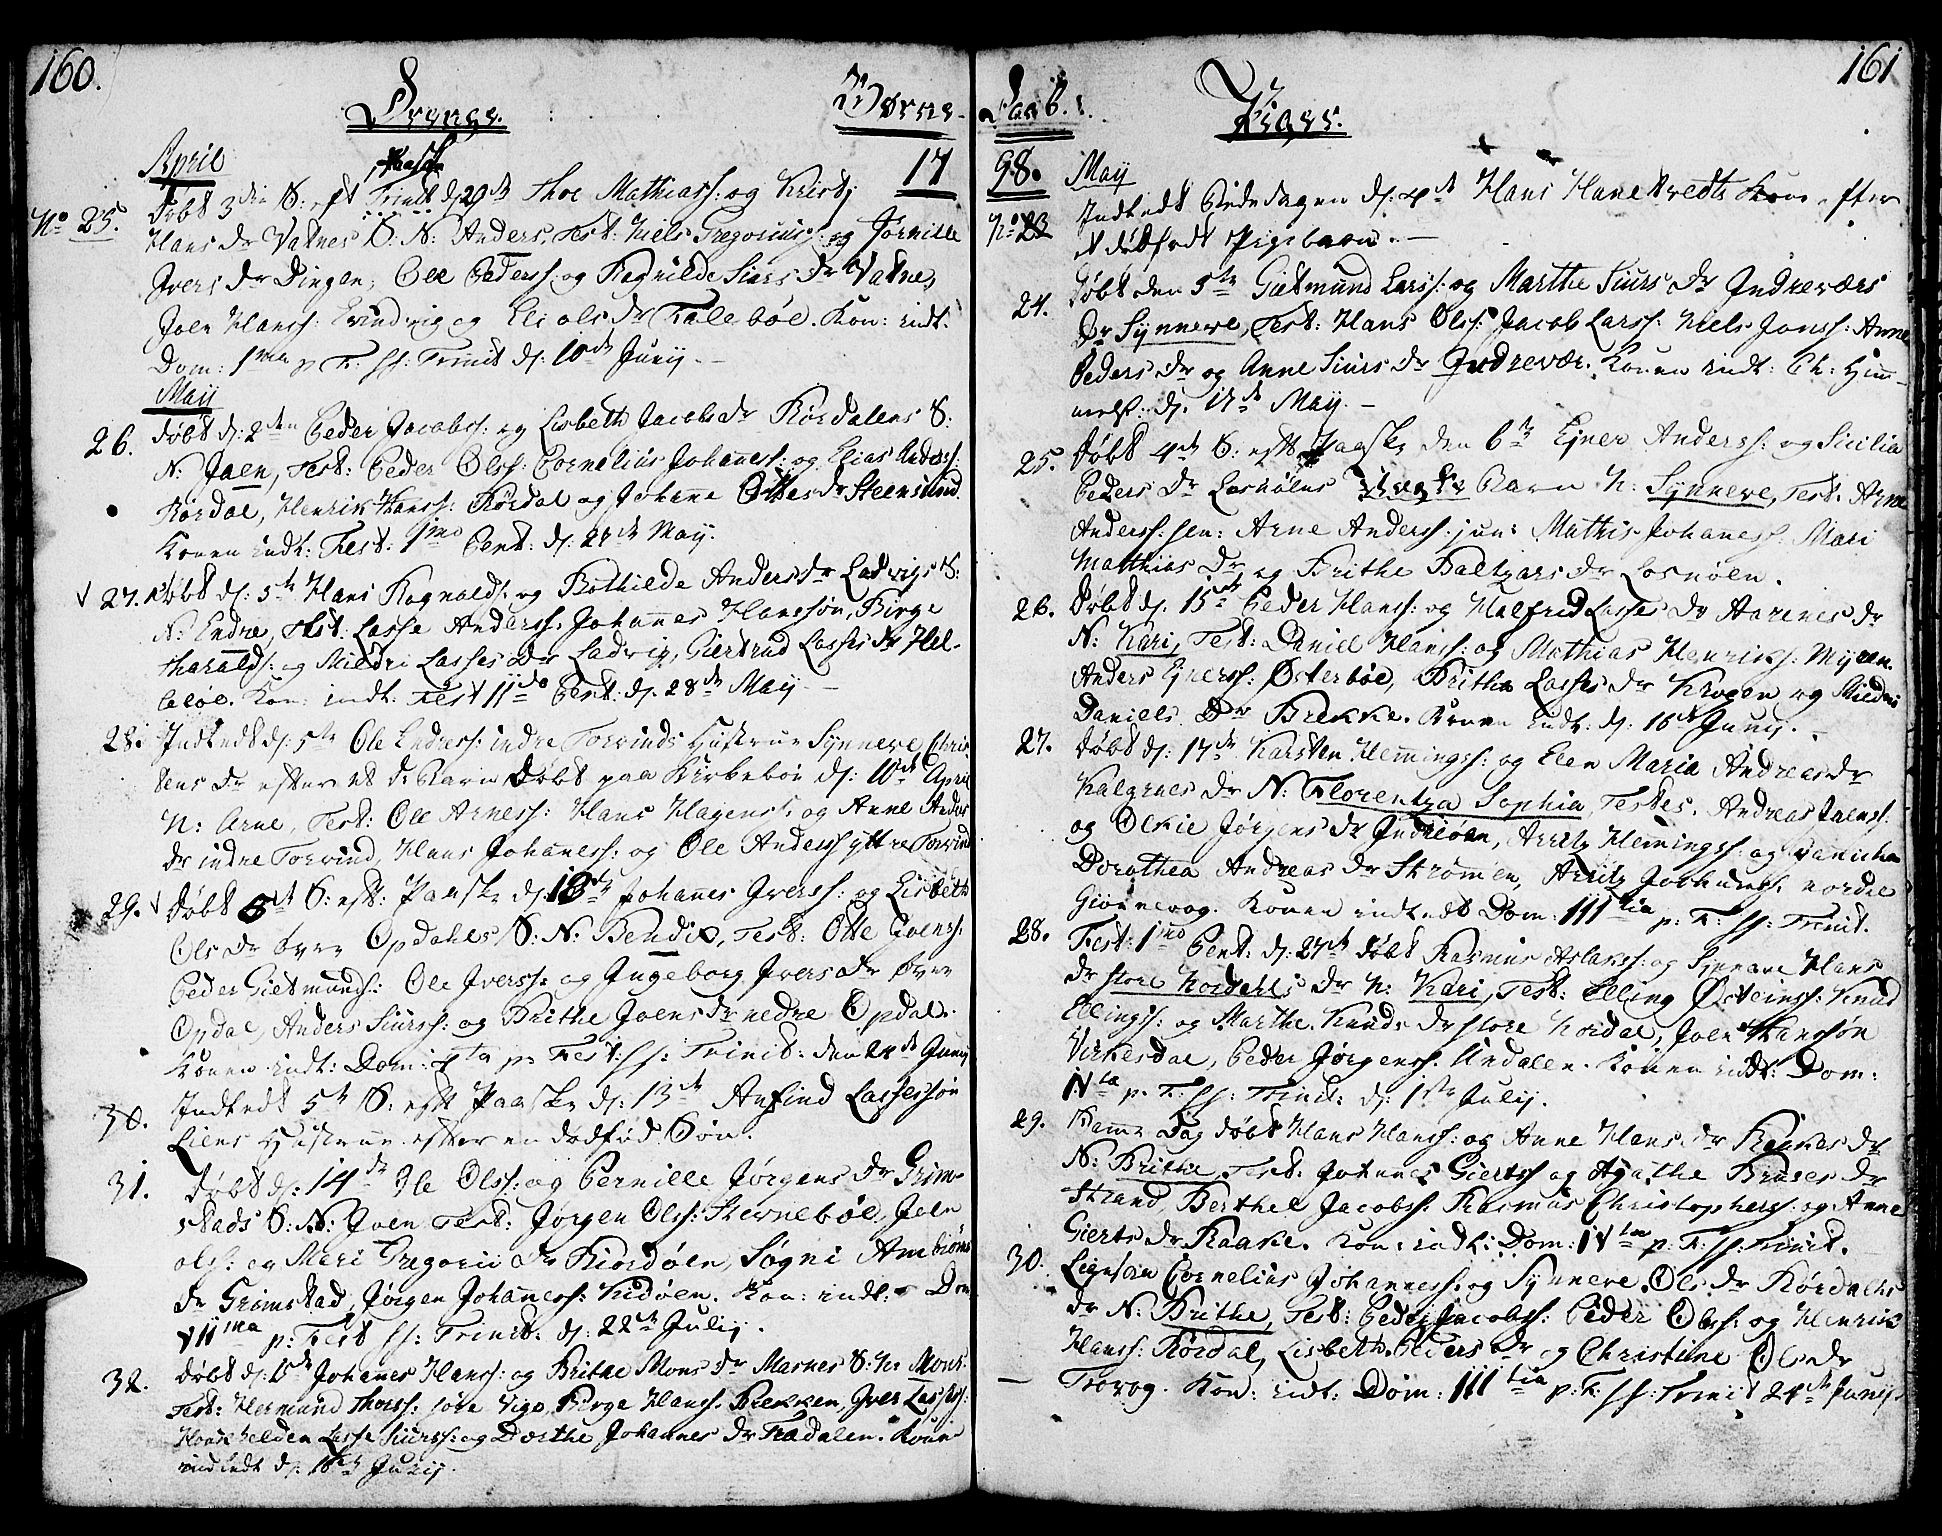 160.
Drenge.
Børne
April
17
Døbt 3die S: eft Paaske d: 29de Thoe Mathiass: og Kristj
No 25. Hans Dr Vatnes S. N: Anders, Test: Niels Gregoriuss: og Jørnille
Ivers Dr Dingen, Ole Peders: og Ragnilde Siurs Dr Vatnes,
Joen Hanss: Evindvig og Eli Ols Dr Falebøe. Kon: indt:
Dom: 1ma p F. SS: Trinit d: 10de Junij.
May
26. Døbt d: 2den Peder Jacobss: og Lisbeth Jacobs Dr Rørdalens S:
N: Joen, Test: Peder Olss: Cornelius Johaness: og Elias Anderss:
Rørdal, Henrik Hanss: Rørdal og Johanne Ottes Dr Steensund.
Konen indt: Fest: 1mo Pent: d: 27de May.
27. Døbt d: 5te Hans Ragnalds: og Bothilde Anders Dr Ladvigs S:
N: Endre, Test: Lasse Anderss. Johannes Hanssøn, Birge
Haralds: og Mildri Lasses Dr Ladvig, Giertrud Lasses Dr Hel-
leløe. Kon: indt: Fest 11do Pent: d: 28de May
28. Indledt d: 5te Ole Endress: indre Torvinds Hustrue Synneve Chris
tens Dr efter et d: Barn Døbt paa Kirkebøe d: 10de April
N: Arne, Test: Ole Arness: Hans Hagens: og Anne Anders
Dr indre Torvind, Hans Johaness: og Ole Anderss yttre Torvind
29. Døbt 5te S: eft: Paaske d: 13de Johanes Iverss: og Lisbeth
Ols Dr øvre Opdahls S: N: Bendix, Test: Otte Joenss:
Peder Gietmunds: Ole Iverss: og Ingeborg Ivers Dr øvre
Opdal, Anders Siurss: og Brithe Joens Dr nedre Opdal.
Konen indt: Dom: 4ta p: Fest: SS: Trinit: den 24de Junij
30. Indledt 5te S: eft Paaske d: 13de Anfind Lassessøn
Liens Hustrue efter en dødfød Søn.
31. Døbt d: 14de Ole Olss: og Pernille Jørgens Dr Grim-
stads S: N: Joen Test: Jørgen Olss: Stevnebøe, Joen
ols: og Mari Gregorii Dr Riordøen, Søgni Ambrøns
Dr Grimstad, Jørgen Johaness: Hidøen. Kon: indt: Dom
VIIma p: Fest SS: Trinit: d: 22de Julij.
32. Døbt d: Johanes Hanss: og Brithe Mons Dr Masnes S: N: Mons
Test: Hermund Thoess: Vige, Birge Hanss. Brekken, Iver Lasses:
Lasse Siurss: og Dorthe Johannes Dr Fredalen. Konen
indledt d: Junij.
161
Daab.
Piger.
98.
May
No 23 Indledt Bededagen d: 4de Hans Hanekvedts Kone efter
et dødfødt Pigebarn.
24. Døbt den 5te Gietmund Larss: og Marthe Siurs Dr Indreværs
Dr Synneve, Test: Hans Olss: Jacob Larss: Niels Jonss: Anne
Peders Dr og Anne Siurs Dr Indrevær. Konen indt: Ch: Him-
melsf: d. 17de May.
25. Døbt 4de S: eft Paaske den 6te Ejner Anderss: og Sicilia
Peders Dr Losnølens Barn N: Synneve, Test. Arne
Anderss: sen: Arne Anderss: jun: Mathis Johaness: Mari
Matthias Dr og Brithe Baltzars Dr Losnøen.
26. Døbt d: 15de Peder Hanss: og Halfrid Lasses Dr Aarenes Dr
N: Kari, Test: Daniel Hanss: og Mathias Henriks: Myren.
Anders Ejnerss: Østerbøe, Brithe Lasses Dr Krogen og Mildri
Daniels Dr Brekke. Konen indt: d: 16de Junij.
27. Døbt d: 17de Karsten Hemmingss: og Elen Maria Andreas Dr
Kalgenes Dr N: Florentza Sophia, Testes, Andreas Joenss:
og Olkie Jørgens Dr Indreøen, Arritz Hemmingss: og
Dorothea Andreas Dr Strømen, Arritz Jochums: nordre
Givrevog. Konen indledt Dom: IIItia p: F: SS: Trinit.
28. Fest: 1mo Pent: d: 27de døbt Rasmus Aslakss: og Synneve Hans
Dr store Nordahls Dr N: Kari, Test: Elling Østeinss: Knud
Ellings: og Marthe Knuds Dr store Nordal, Joen Hanssøn
Virkesdal, Peder Jørgenss. Undalen. Konen indt: Dom:
IVta p. F. SS: Trinit: d: 1ste Julij.
29. Samme Dag døbt Hans Hanss: og Anne Hans Dr Raakes Dr
N: Brithe, Test: Johannes Gierts og Agathe Bruses Dr
Strand, Berthel Jacobss: Rasmus Christophers: og Anne
Gierts Dr Raake. Kon: indl: Dom: IVta p: F: SS: Trinit.
30. Ligesaa Cornelius Johanness: og Synneve Ols Dr Rørdahls
Dr N: Brithe, Test: Peder Jacobss: Peder Olss: og Henrik
Hanss: Rørdal, Lisbeth Peders Dr og Christine Ols Dr
Trovog. Kon: indt: Dom: IIItia p: F: SS: Trinit 24de Junij